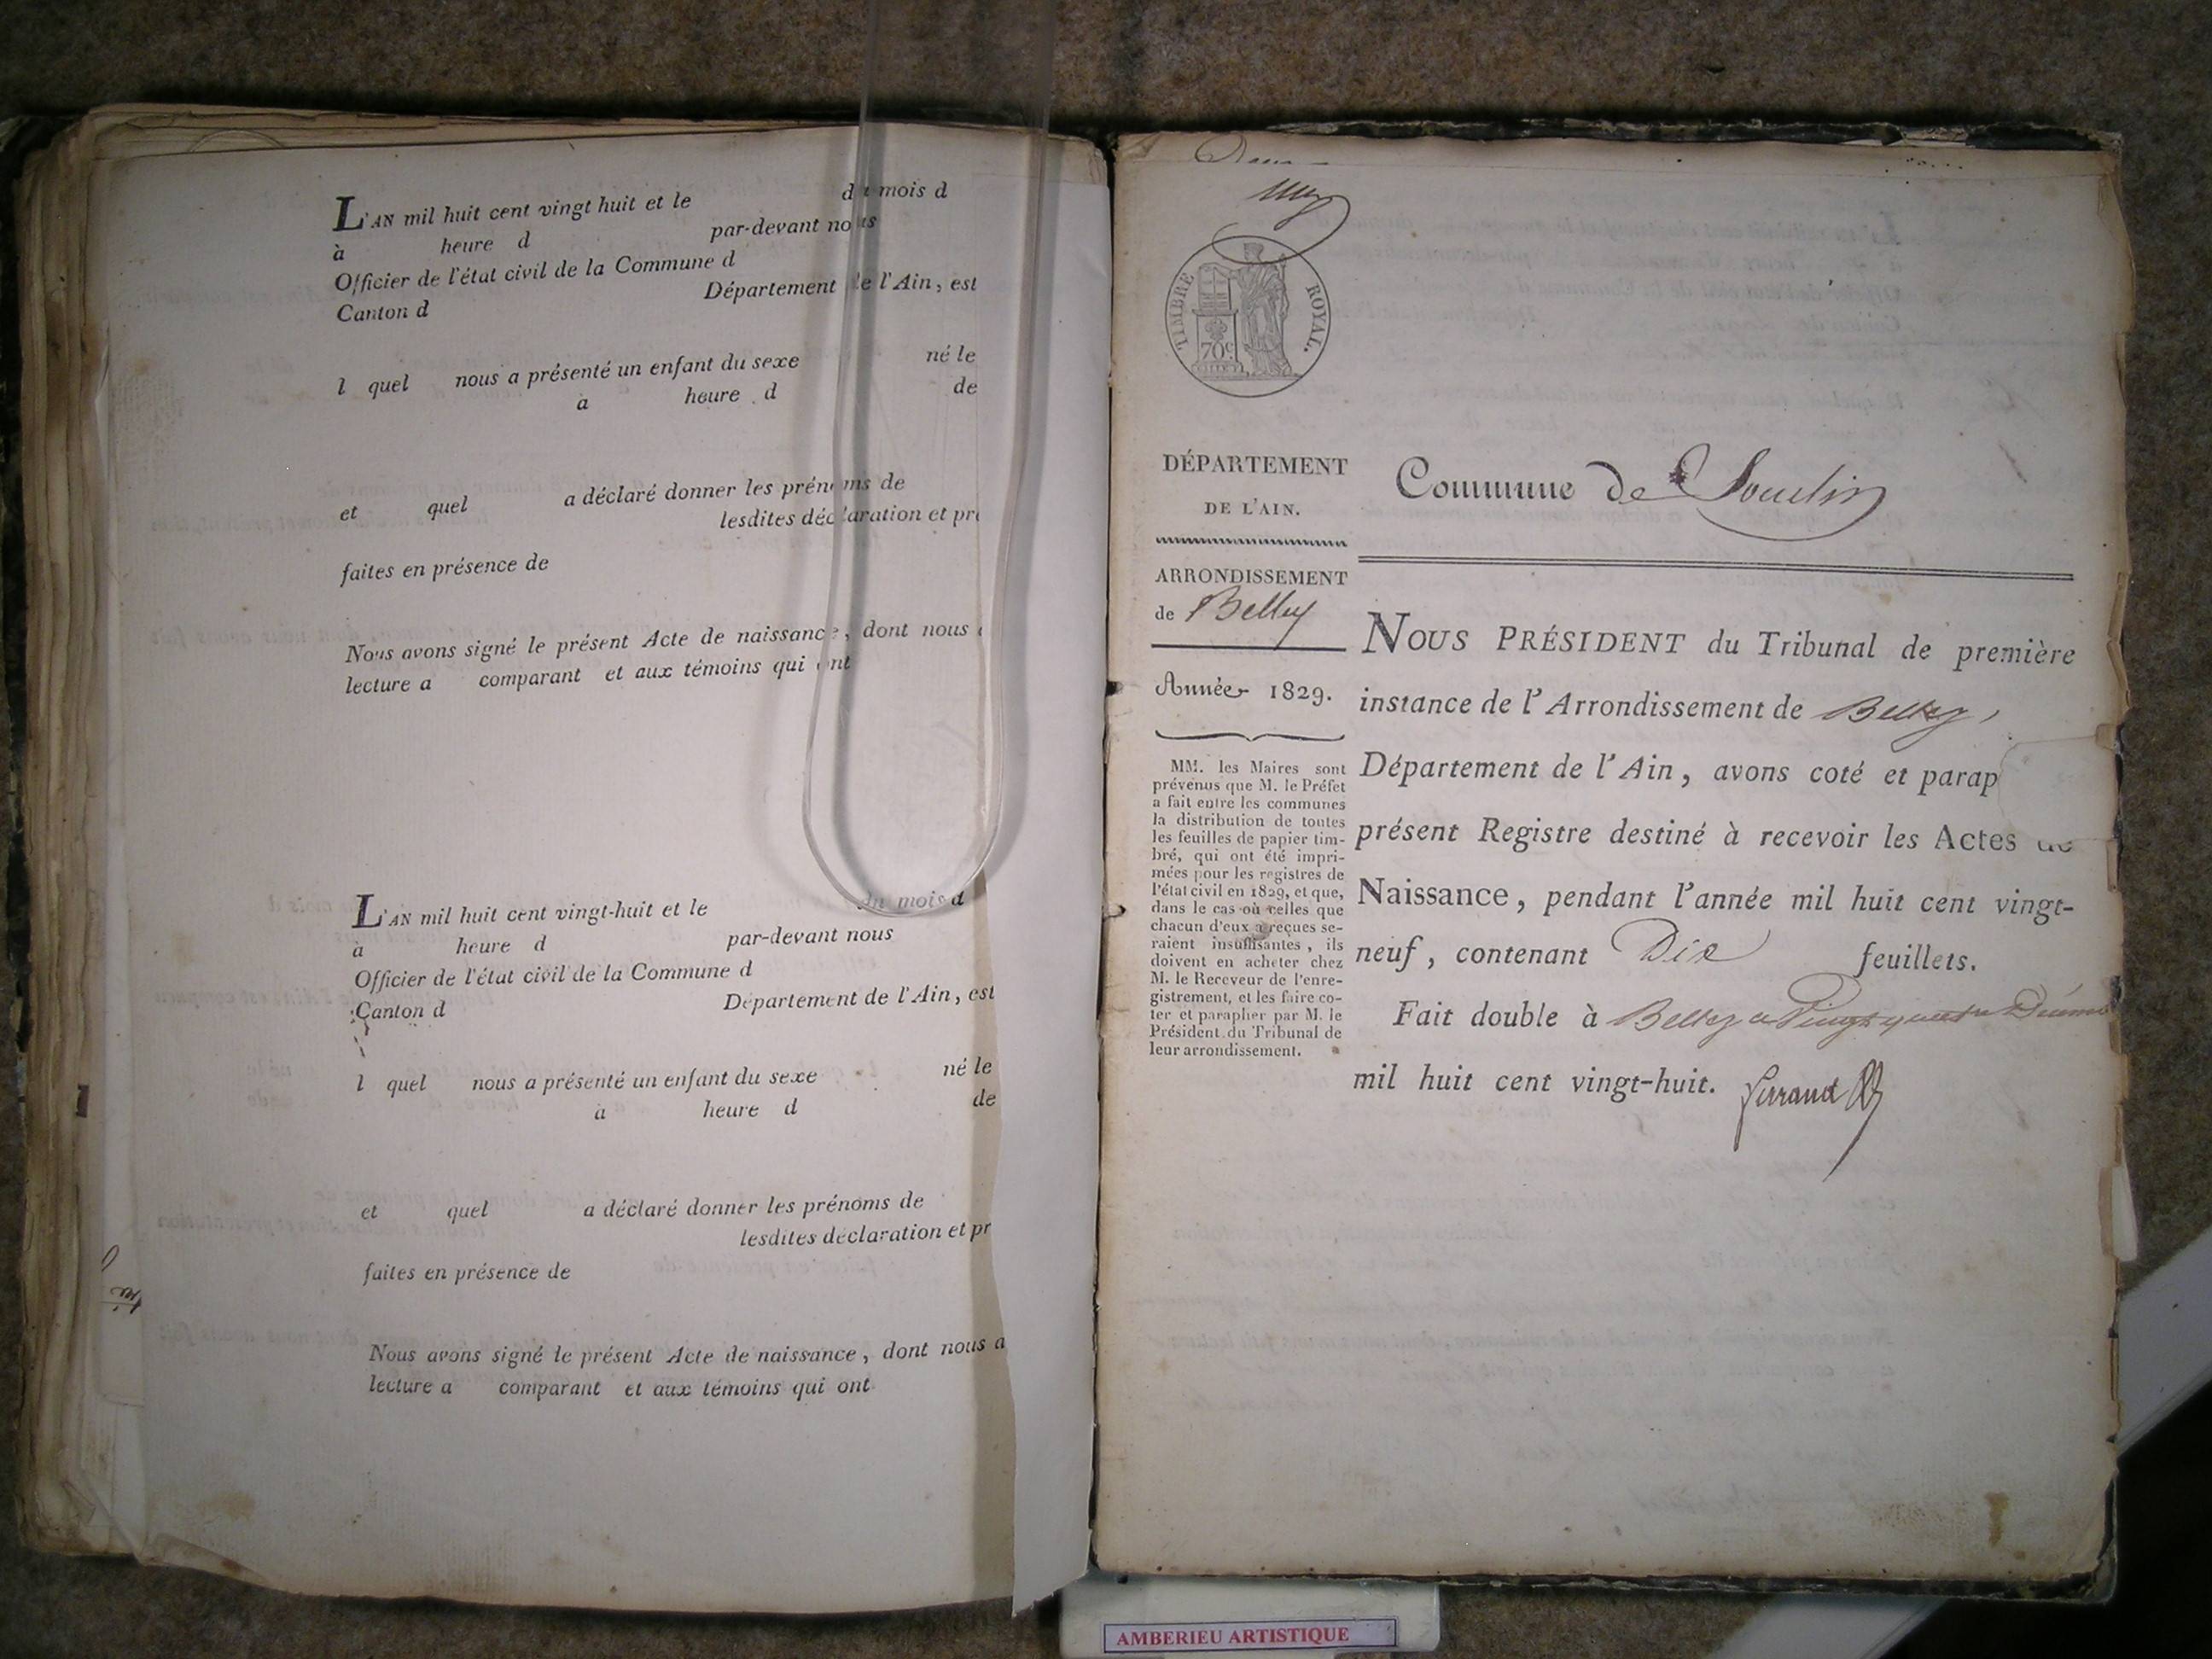 L'AN mil huit cent vingt huit et le du mois d
à heure d par-devant nous
Officier de l'état civil de la Commune d
Canton d Département de l'Ain, est
l quel nous a présenté un enfant du sexe né le
à heure d de
et quel a déclaré donner les prénoms de
lesdites déclaration et pré
faites en présence de
Nous avons signé le présent Acte de naissance, dont nous a
lecture a comparant et aux témoins qui ont
L'AN mil huit cent vingt-huit et le du mois d
à heure d par-devant nous
Officier de l'état civil de la Commune d
Canton d Département de l'Ain, est
l quel nous a présenté un enfant du sexe né le
à heure d de
et quel a déclaré donner les prénoms de
lesdites déclaration et pr
faites en présence de
Nous avons signé le présent Acte de naissance, dont nous a
lecture a comparant et aux témoins qui ont
TIMBRE ROYAL.
70c
DÉPARTEMENT
DE L'AIN.
ARRONDISSEMENT
de Belley
Année 1829.
MM. les Maires sont
prévenus que M. le Préfet
a fait entre les communes
la distribution de toutes
les feuilles de papier tim-
bré, qui ont été impri-
mées pour les registres de
l'état civil en 1829, et que,
dans le cas où celles que
chacun d'eux a reçues se-
raient insuffisantes, ils
doivent en acheter chez
M. le Receveur de l'enre-
gistrement, et les faire co-
ter et parapher par M. le
Président du Tribunal de
leur arrondissement.
Commune de
NOUS PRÉSIDENT du Tribunal de première
instance de l'Arrondissement de Belley,
Département de l'Ain, avons coté et parap
présent Registre destiné à recevoir les Actes de
Naissance, pendant l'année mil huit cent vingt-
neuf, contenant Dix feuillets.
Fait double à Belley ce Vingt quatre Décemb
mil huit cent vingt-huit.
AMBERIEU ARTISTIQUE